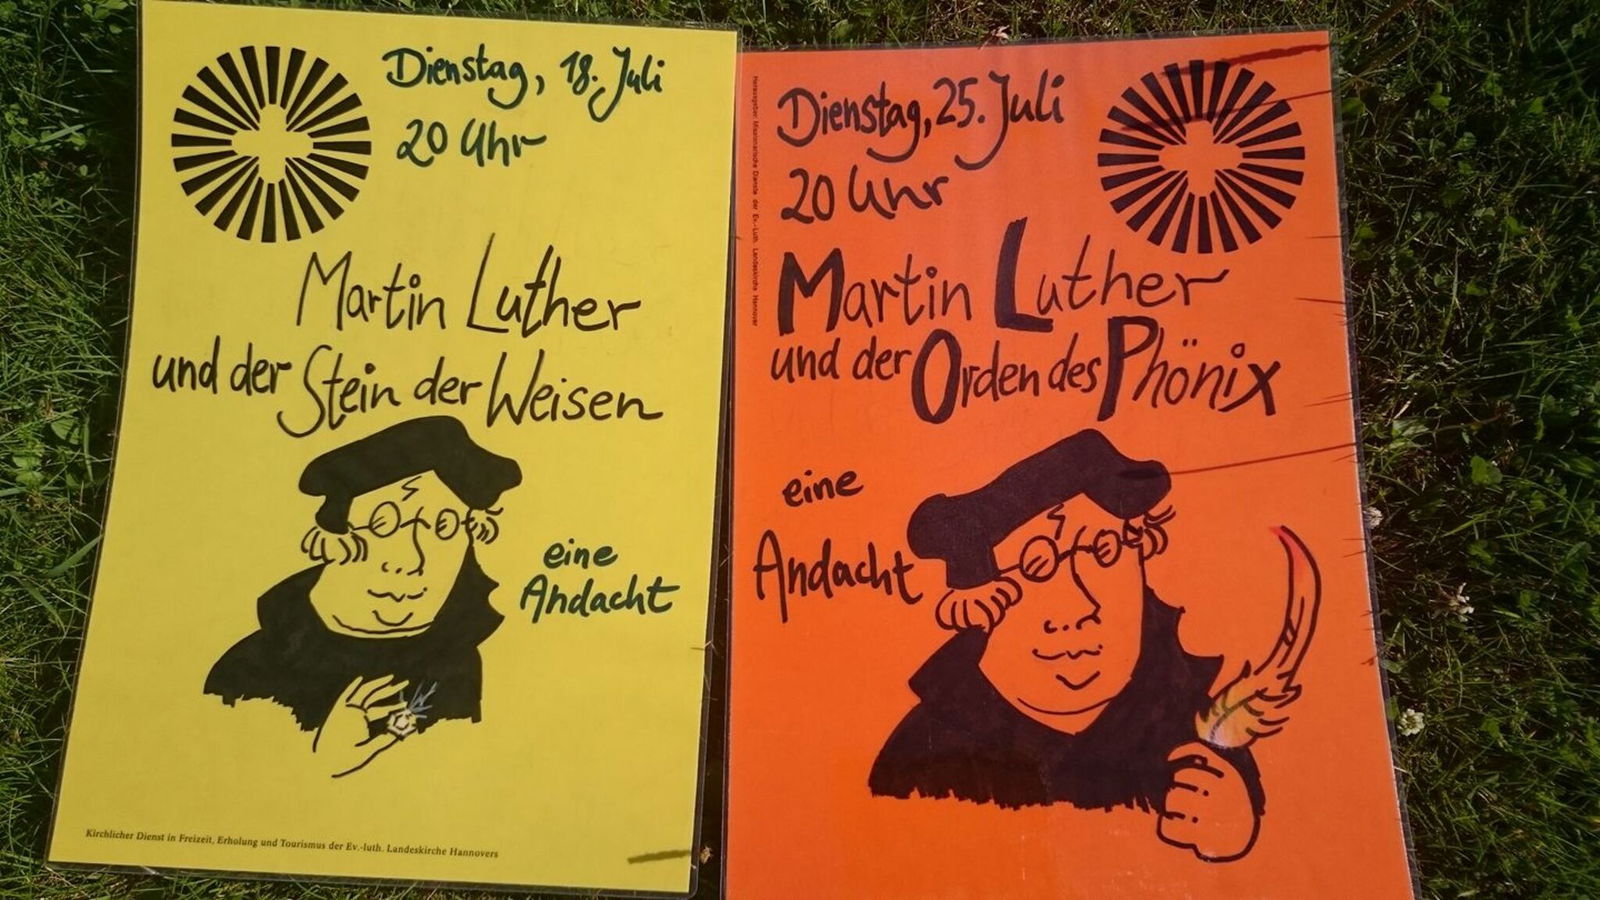 Dienstag, 18. Juli
20 Uhr
Martin Luther
und der Stein der Weisen
eine
Andacht
Kirchlicher Dienst in Freizeit, Erholung und Tourismus der Ev.-luth. Landeskirche Hannovers
Herausgeber Missionarische Dienste der Ev.-Luth. Landeskirche Hannover
Dienstag, 25. Juli
20 Uhr
Martin Luther
und der Orden des Phönix
eine
Andacht